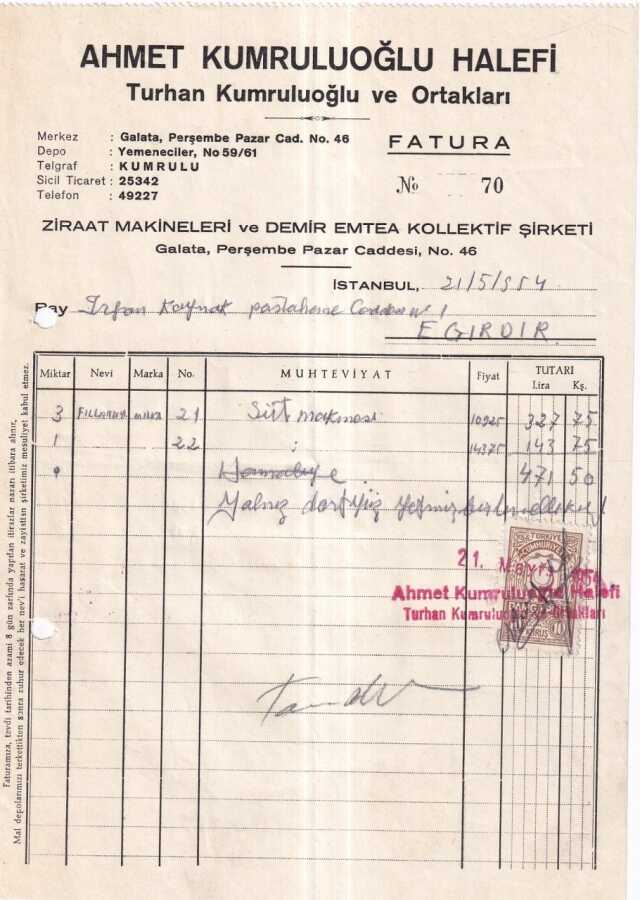 AHMET KUMRULUOĞLU HALEFİ
Turhan Kumruluoğlu ve Ortakları
Merkez : Galata, Perşembe Pazar Cad. No. 46
Depo : Yemeneciler, No 59/61
Telgraf : KUMRULU
Sicil Ticaret : 25342
Telefon : 49227
FATURA
No 70
ZİRAAT MAKİNELERİ ve DEMİR EMTEA KOLLEKTİF ŞİRKETİ
Galata, Perşembe Pazar Caddesi, No. 46
İSTANBUL, 21/5/954
Bay İrfan Kaynak pastahane Caddesi No 1
EGIRDIR
Miktar Nevi Marka No. MUHTEVİYAT Fiyat TUTARI
Lira Kş.
3 21 Süt makinesi 10925 327 75
1 22 14375 143 75
471 50
Yalnız dörtyüz yetmiş
21. Mayıs 1954
Ahmet Kumruluoğlu Halefi
Turhan Kumruluoğlu ve Ortakları
TÜRKİYE
CUMHURİYETİ
10
KURUŞ
Faturamıza, tevdi tarihinden azami 8 gün zarfında yapılan itirazlar nazarı itibara alınır,
Mal depolarımızı terkettikten sonra zuhur edecek her nev'i hasarat ve zayiattan şirketimiz mesuliyet kabul etmez.